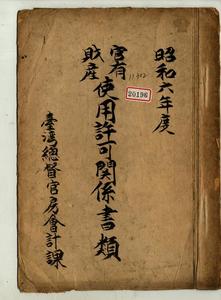 昭和六年度
官有
財産
使用許可關係書類
11-302
20196
臺灣總督官房會計課